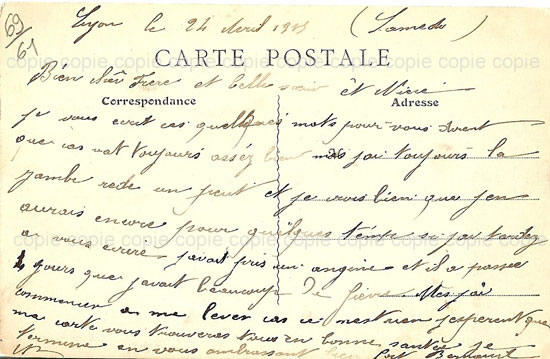 69/61
Lyon le 24 Avril 19 (Samedi)
CARTE POSTALE
Bien cher Frere et Belle sœur et Niece
Correspondance
Adresse
je vous ecrit ces quelques mots pour vous
que cas vat toujours assez bien mes jai toujours la
jambe rede un peut et je crois bien que jen
aurais encore pour quelques temps si jai tardez
a vous ecrire javait pris un angine et il a passee
4 jours que javait beaucoup de fievre Mes jai
commencer a me lever cas ce nest rien jesperent que
ma carte vous trouveras tous en bonne santer je
termine en vous embrassant bien fort
copie copie copie copie copie copie copie copie